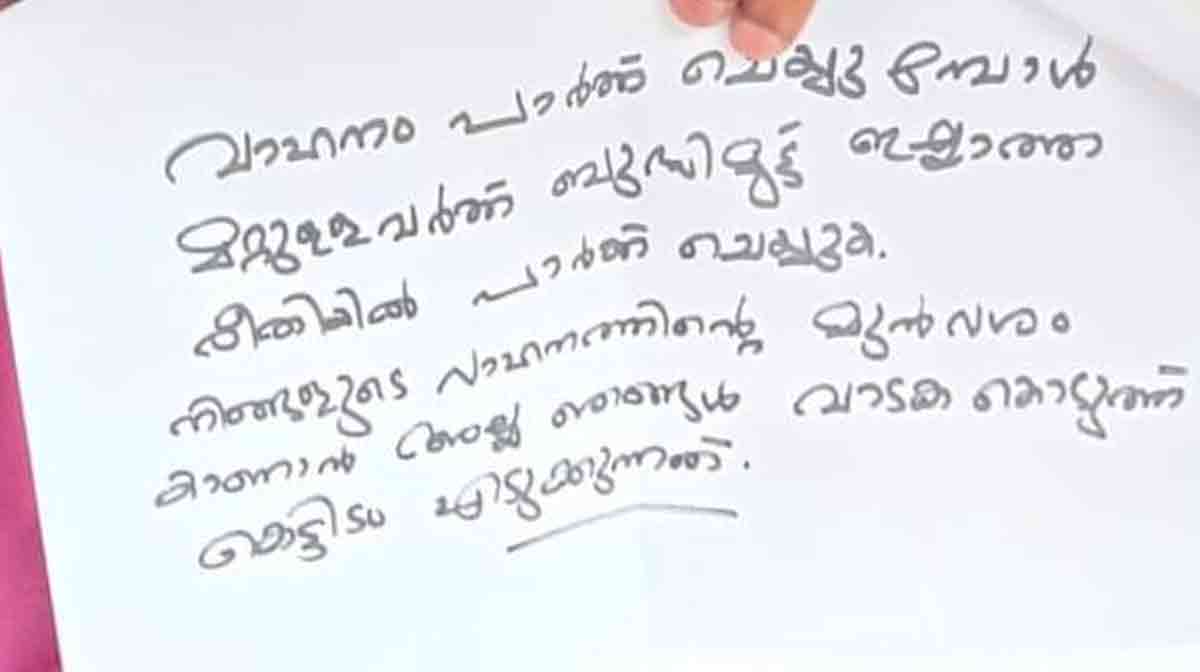 വാഹനം പാർക്ക് ചെയ്യുമ്പോൾ
മറ്റുള്ളവർക്ക് ബുദ്ധിമുട്ട് ഇല്ലാത്ത
രീതിയിൽ പാർക്ക് ചെയ്യുക.
നിങ്ങളുടെ വാഹനത്തിന്റെ മുൻവശം
കാണാൻ അല്ല ഞങ്ങൾ വാടക കൊടുത്ത്
കെട്ടിടം എടുക്കുന്നത്.